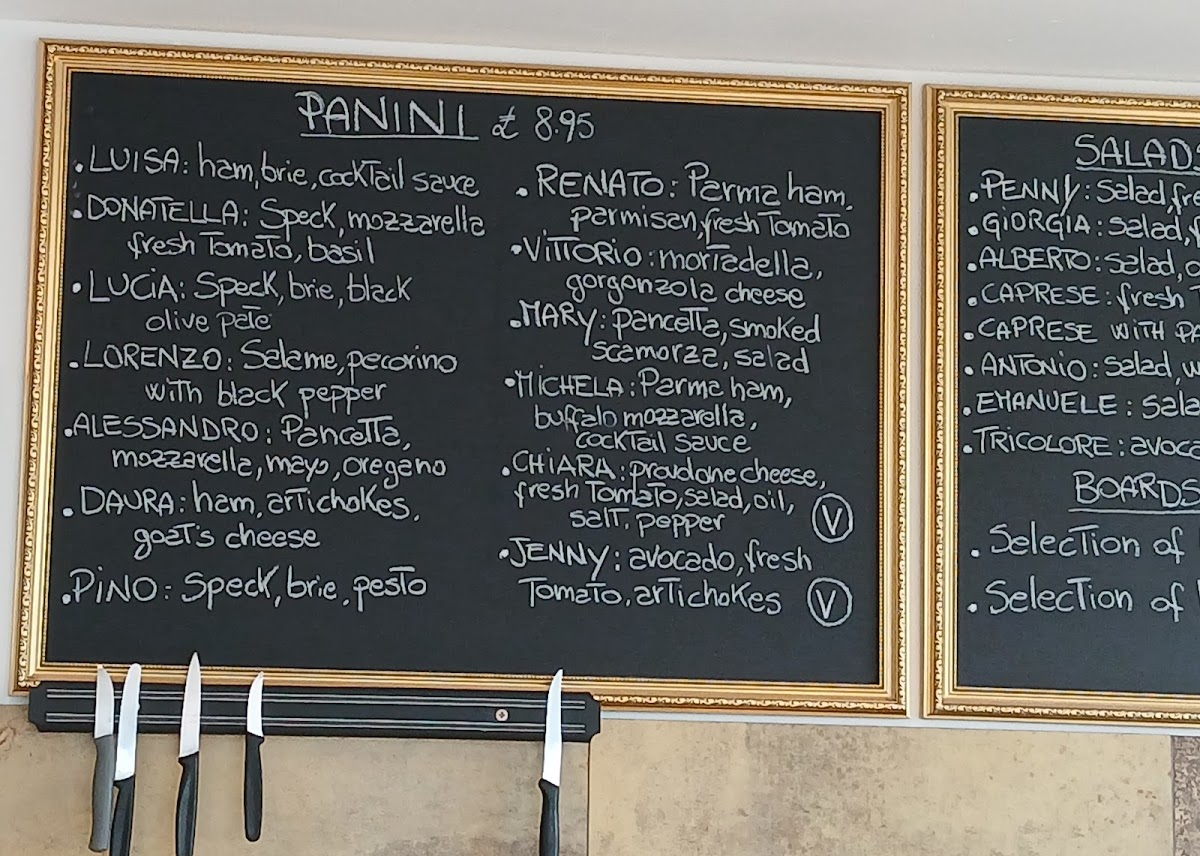 PANINI £ 8.95
• LUISA: ham, brie, cocktail sauce
• DONATELLA: Speck, mozzarella
fresh Tomato, basil
• LUCIA: Speck, brie, black
olive patè
• LORENZO: Salame, pecorino
with black pepper
• ALESSANDRO: Pancetta,
mozzarella, mayo, oregano
• DAURA: ham, artichokes,
goat's cheese
• PINO: Speck, brie, pesto
• RENATO: Parma ham,
parmisan, fresh Tomato
• VITTORIO: mortadella,
gorgonzola cheese
• MARY: pancetta, smoked
scamorza, salad
• MICHELA: Parma ham,
buffalo mozzarella,
cocktail sauce
• CHIARA: provolone cheese,
fresh Tomato, salad, oil,
salt, pepper V
• JENNY: avocado, fresh
Tomato, artichokes V
SALADS
• PENNY: Salad, fre
• GIORGIA: salad,
• ALBERTO: salad,
• CAPRESE: fresh
• CAPRESE WITH PA
• ANTONIO: salad, w
• EMANUELE: Sala
• TRICOLORE: avoca
BOARDS
• Selection of
• Selection of